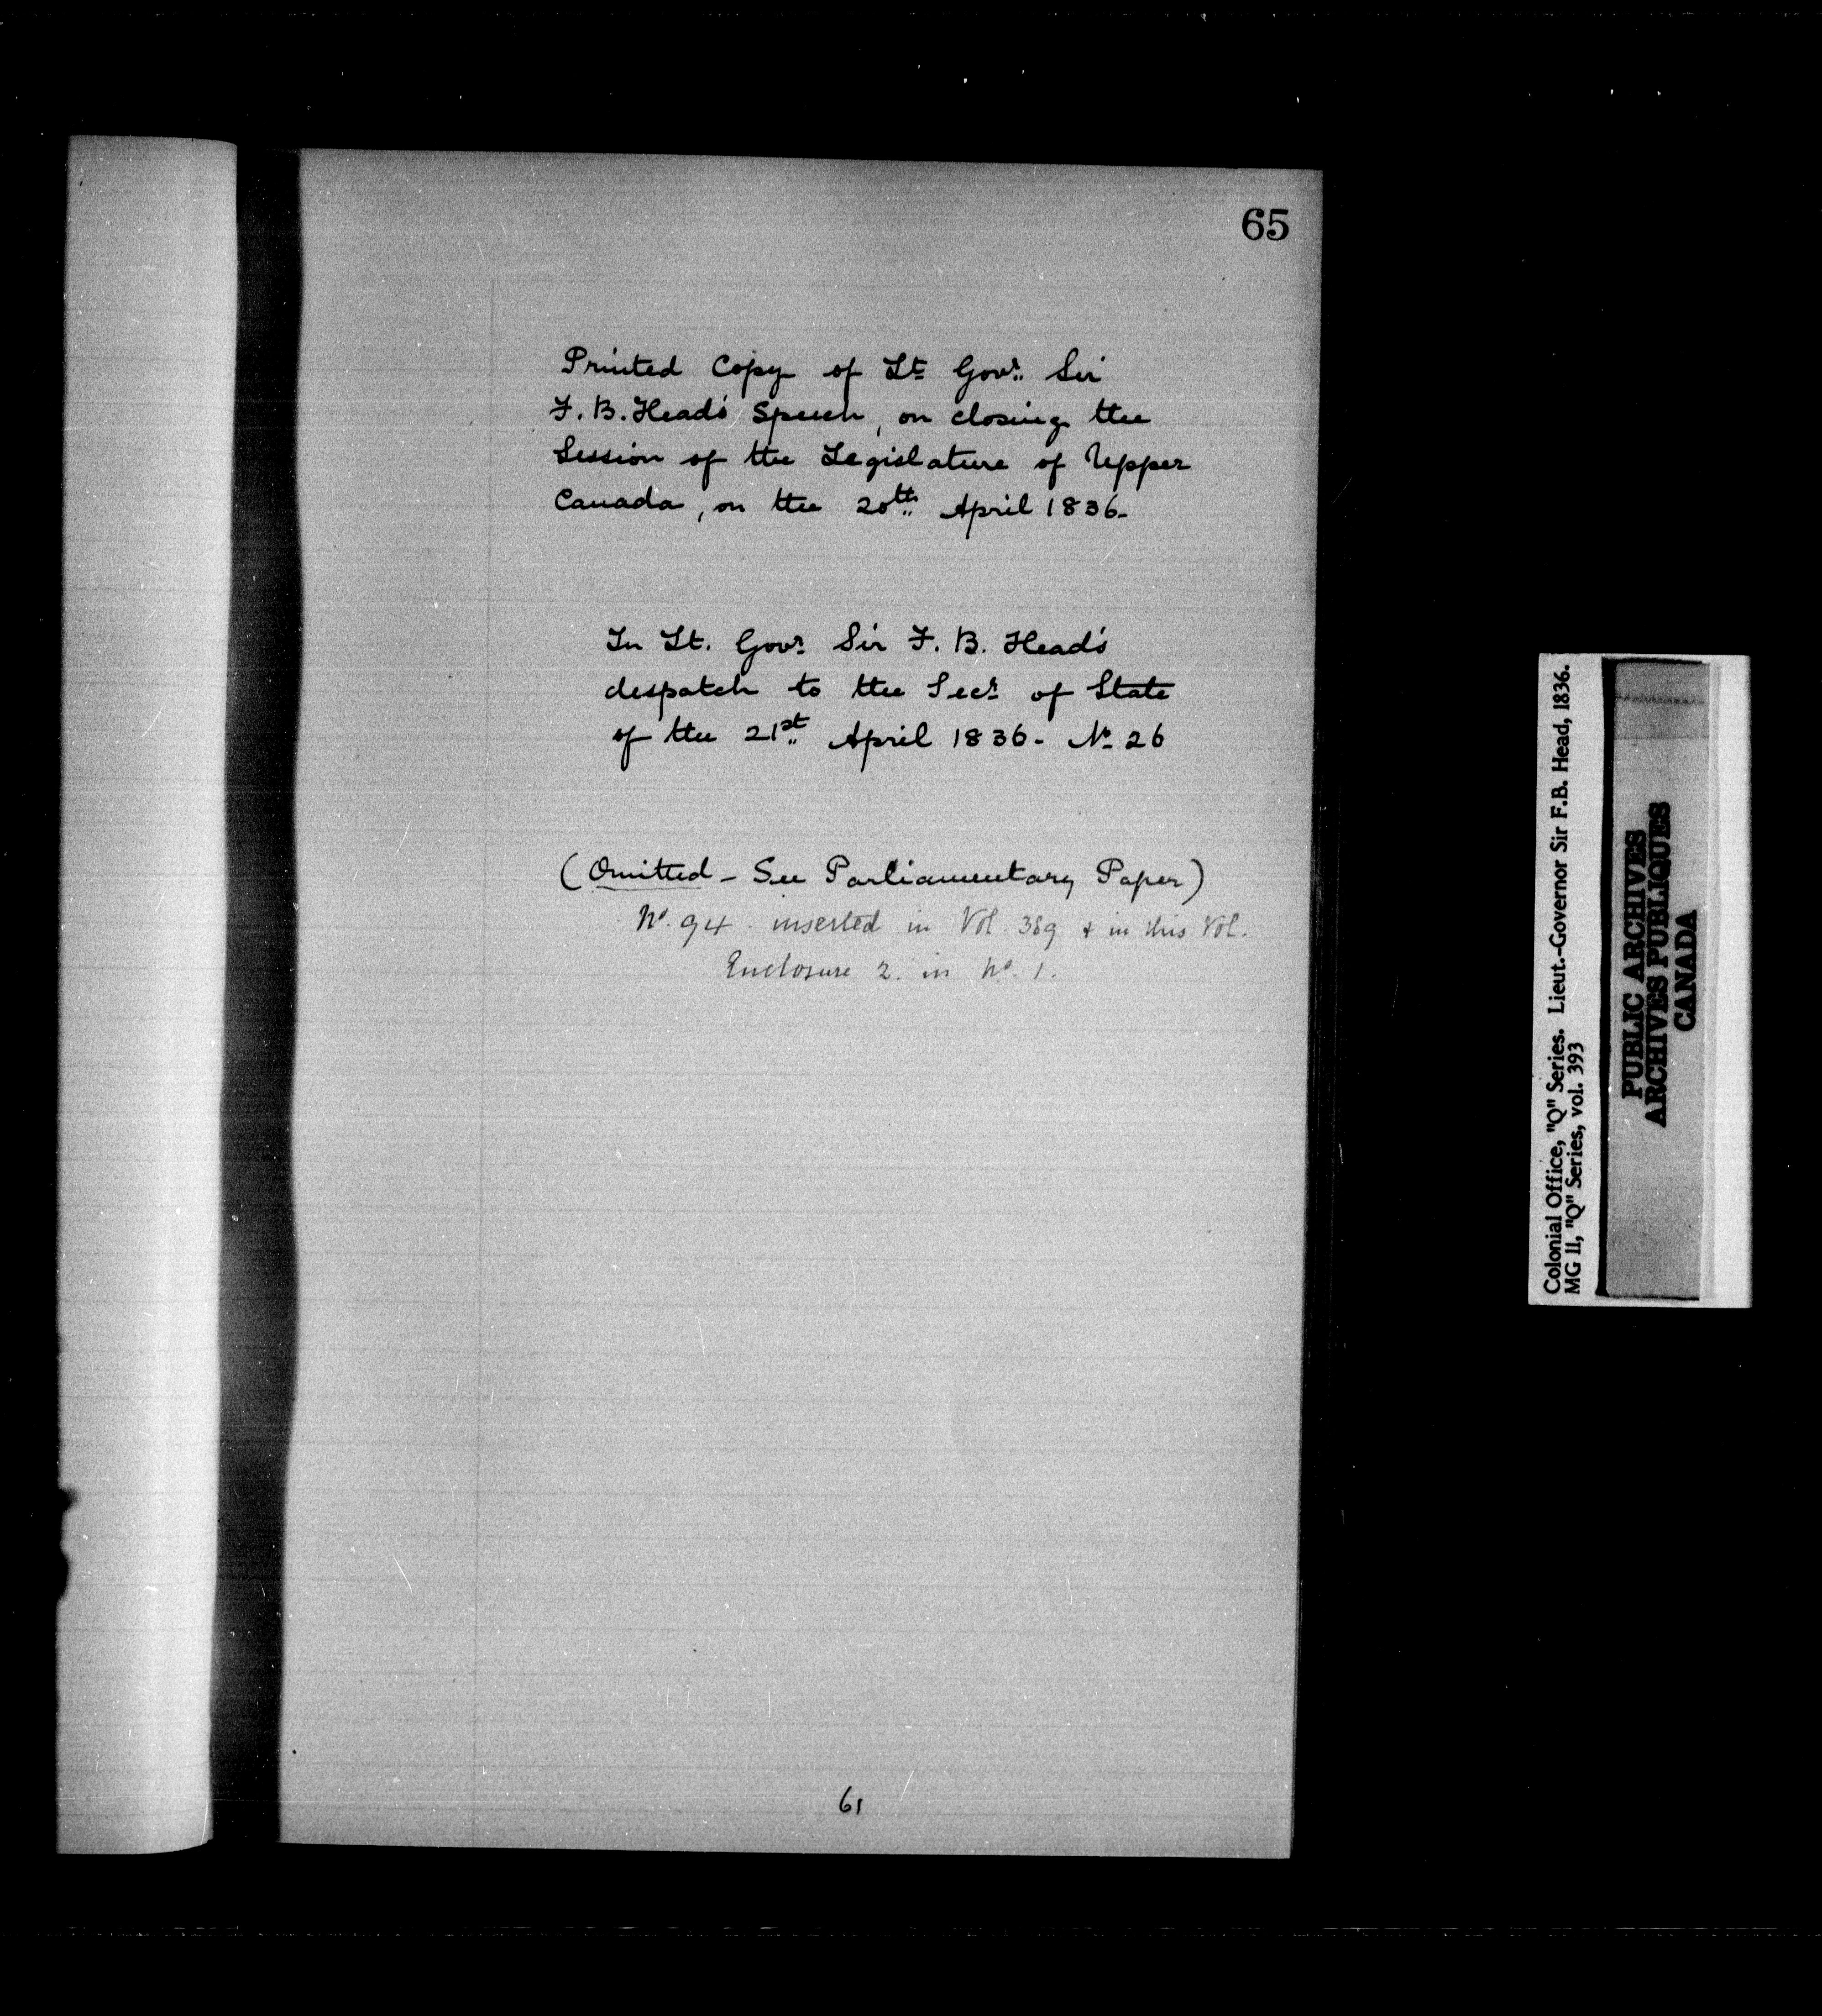 65
Printed Copy of Lt Govr. Sir
F. B. Head's Speech, on closing the
Session of the Legislature of Upper
Canada, on the 20th April 1836-
In Lt. Govr Sir F. B. Head's
despatch to the Secr of State
of the 21st April 1836- No 26
(Omitted - See Parliamentary Paper)
No. 94 inserted in Vol. 389 & in this Vol.
Enclosure 2. in No. 1.
61
Colonial Office, "Q" Series. Lieut.-Governor Sir F.B. Head, 1836.
MG 11, "Q" Series, vol. 393
PUBLIC ARCHIVES
ARCHIVES PUBLIQUES
CANADA